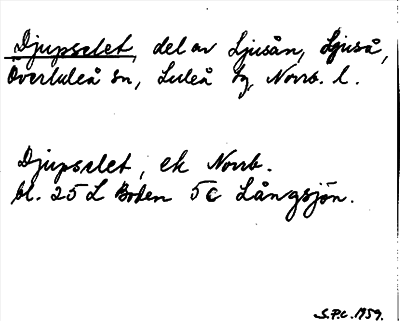 Djupselet, del av Ljusån, Ljuså,
Överluleå sn, Luleå tg, Norrb. l.
Djupselet, ek Norrb.
bl. 25 L Boden 5c Långsjön.
S.P.C. 1959.